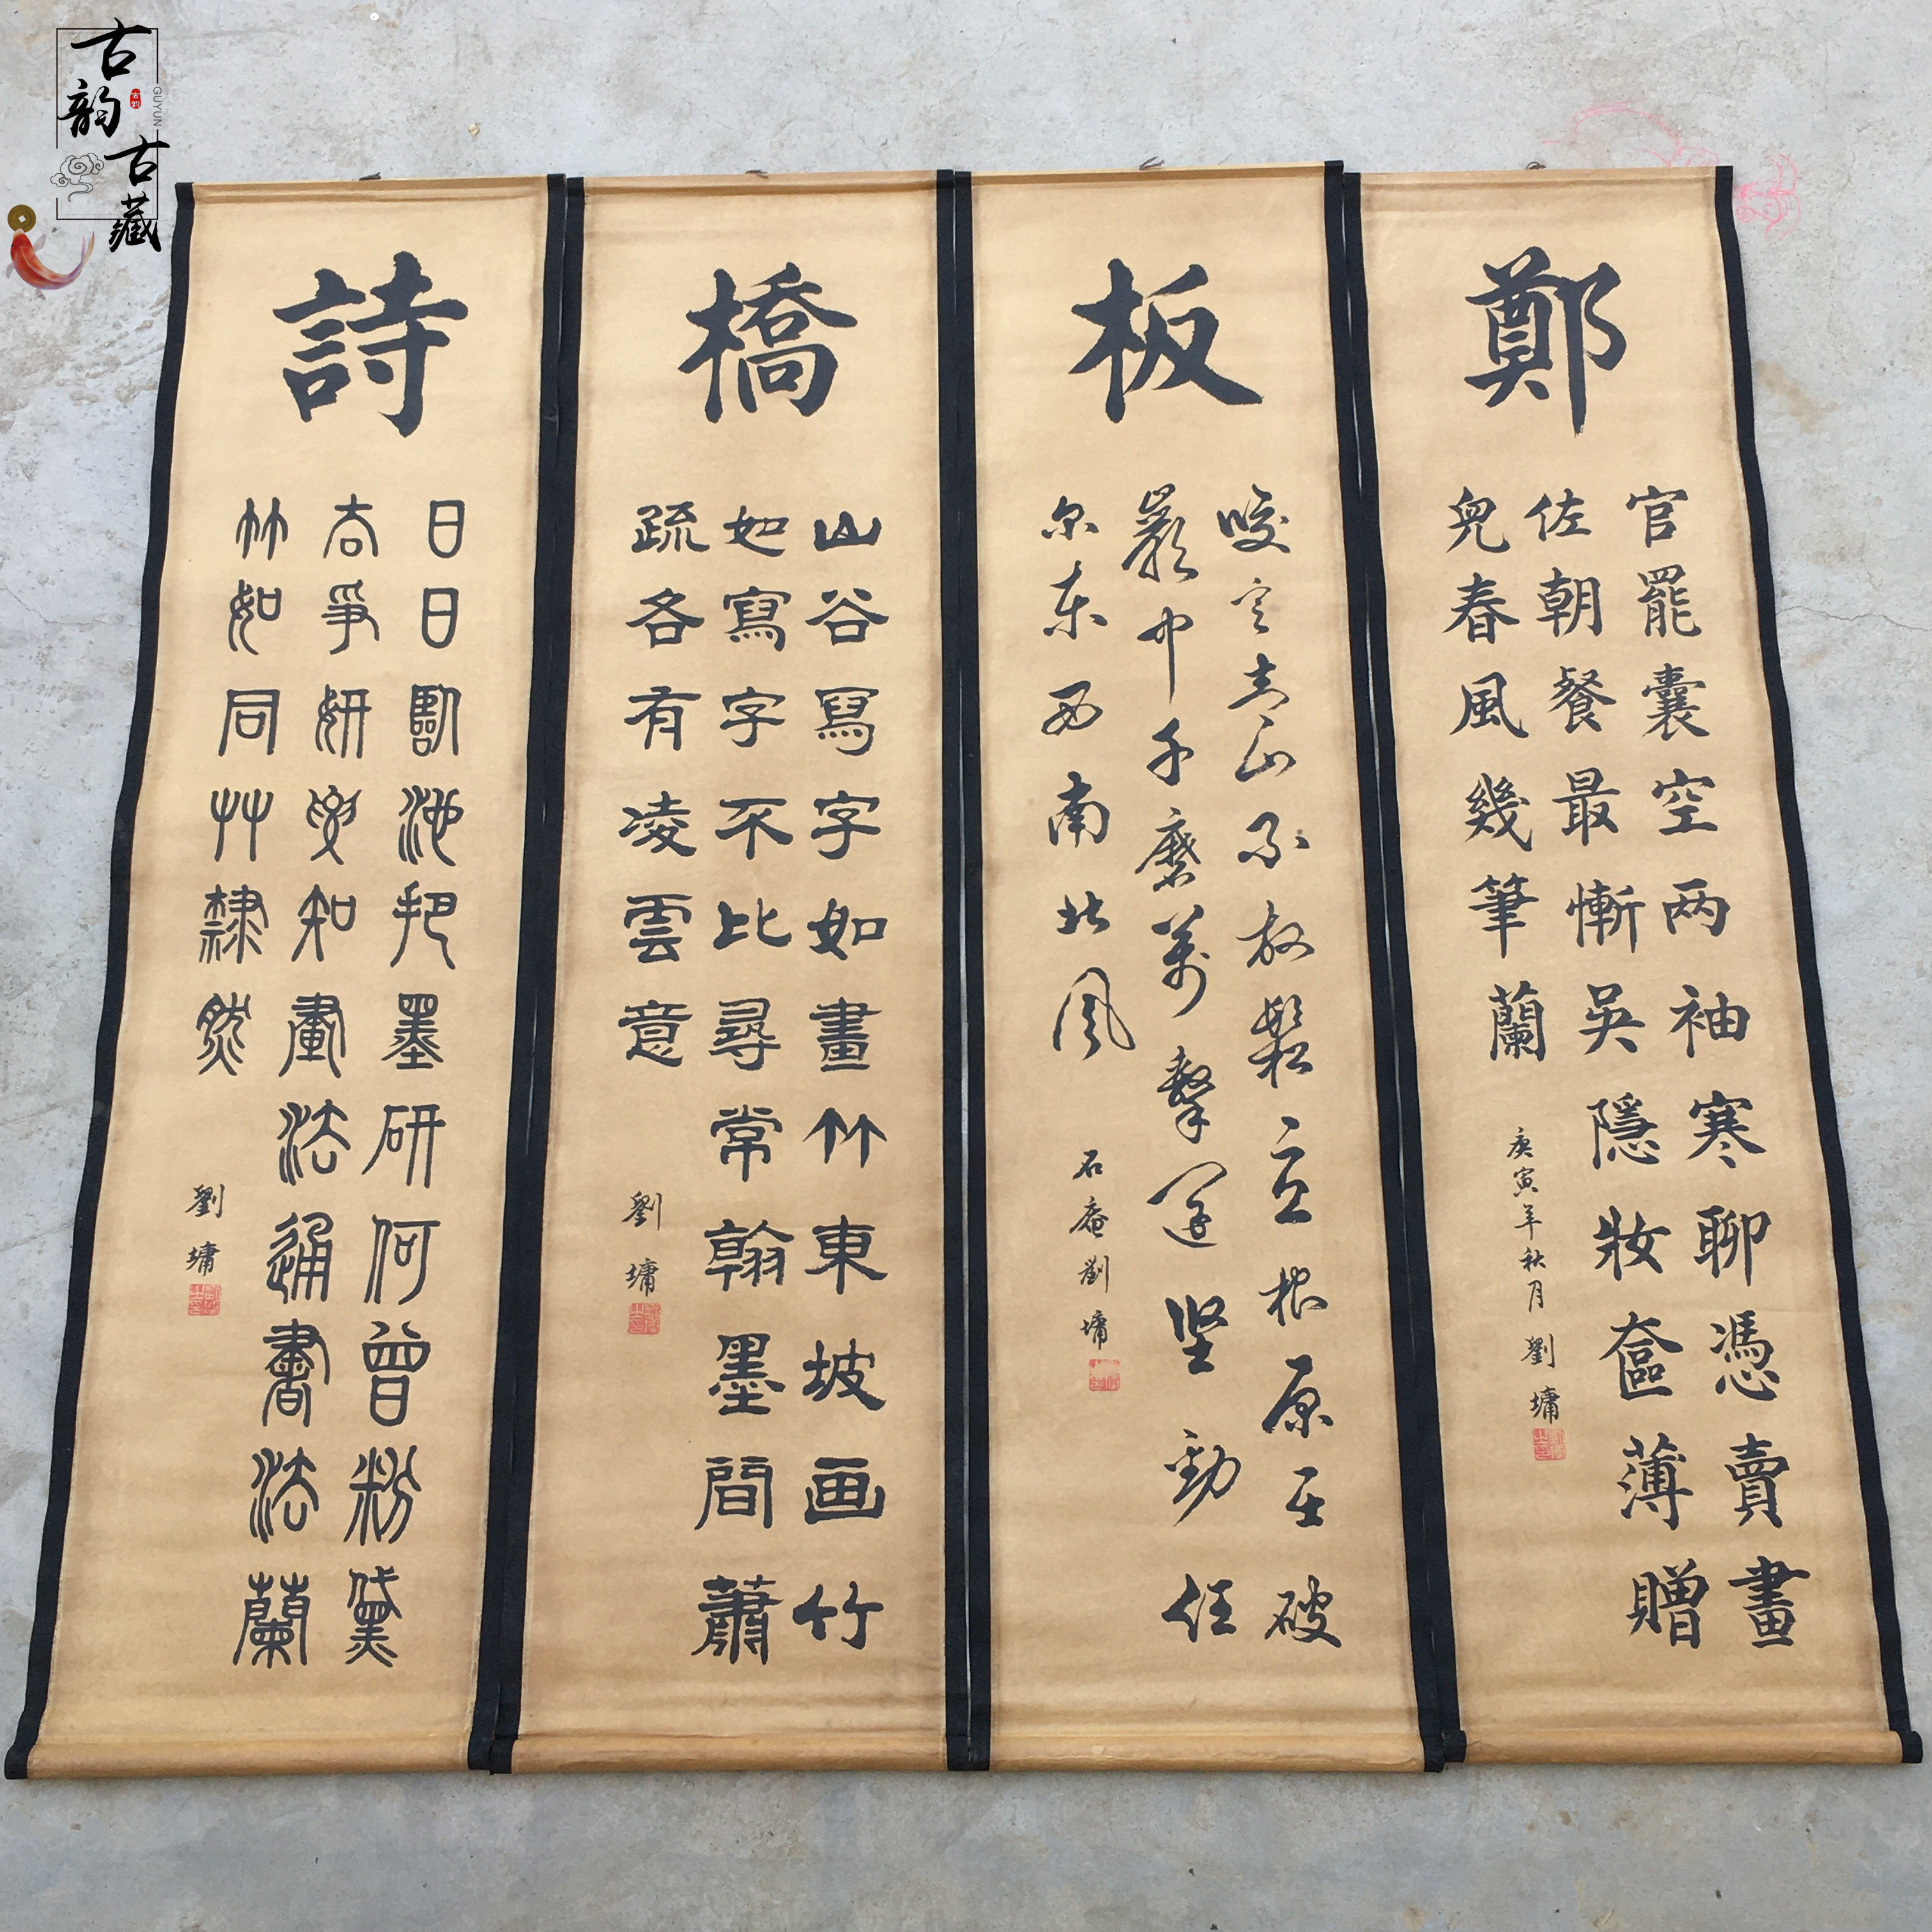 古韵
古藏
GUYUN
鄭
官罷囊空两袖寒聊憑賣畫
佐朝餐最慚吳隱妝奩薄贈
兒春風幾筆蘭
庚寅年秋月 劉墉
板
咬定青山不放鬆立根原在破
巖中千磨萬擊還坚勁任
尔东西南北风
石庵劉墉
橋
山谷寫字如畫竹東坡画竹
如寫字不比尋常翰墨間蕭
疏各有凌雲意
劉墉
詩
日日臨池把墨研何曾粉黛
去爭妍要知畫法通書法蘭
竹如同艸隸然
劉墉